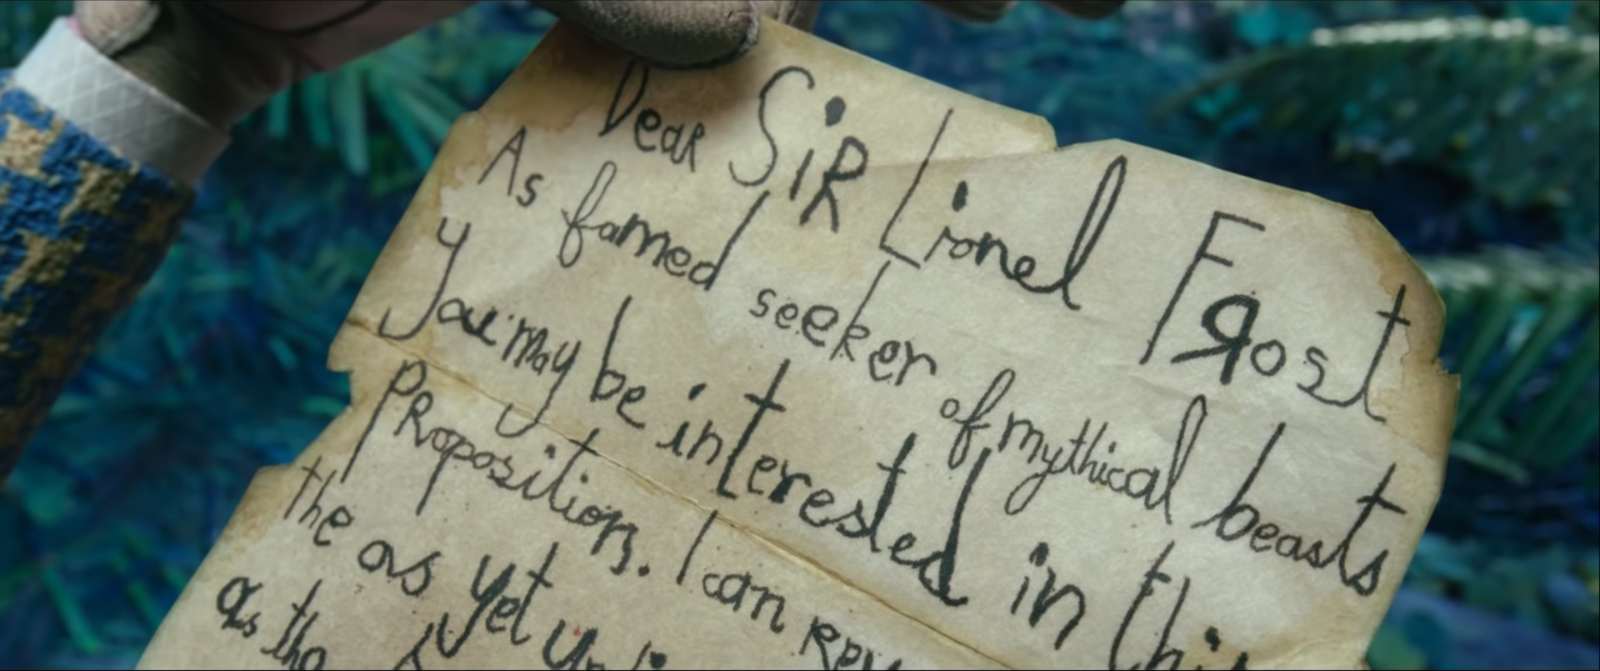 Dear SiR Lionel FRost
As famed seeker of mythical beasts
You may be interested in thi
PRoposition. I can
the as yet
as the